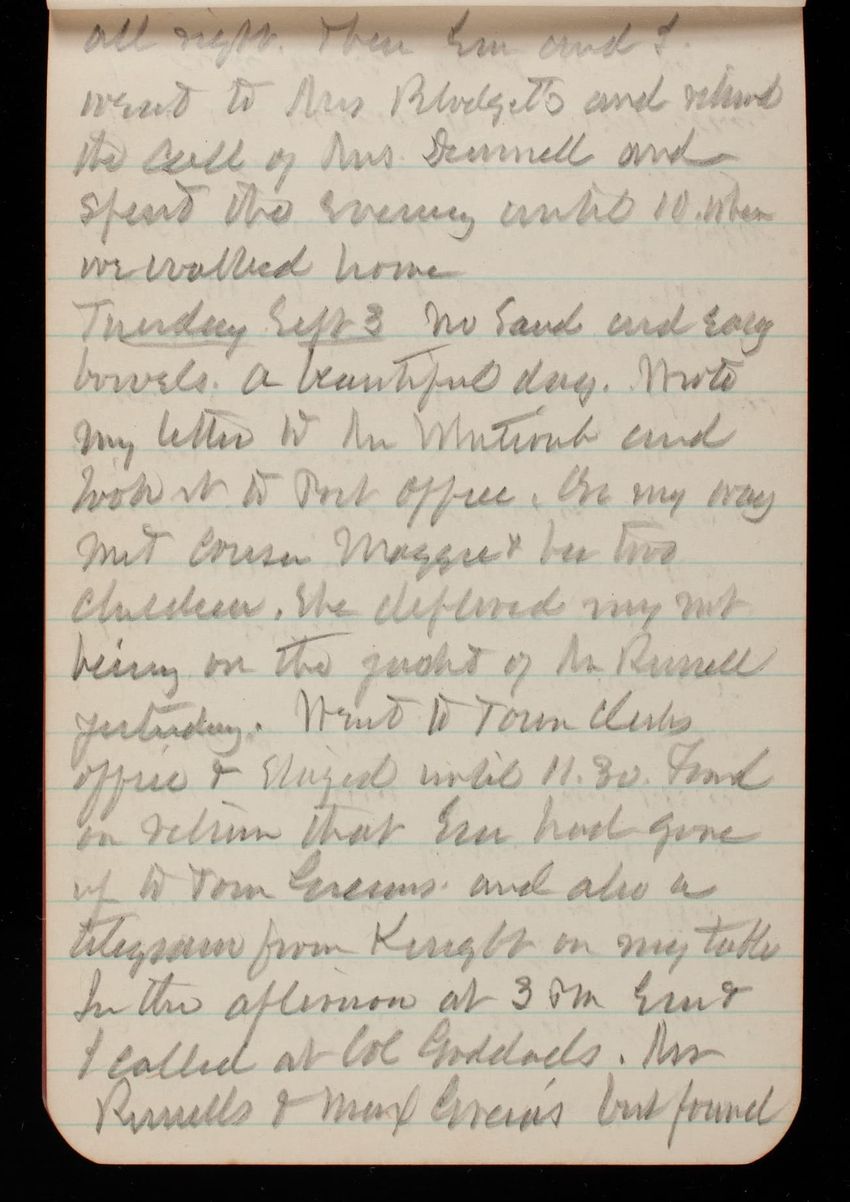 all right. Then Em and I
went to Mrs Blodgetts and
the call of Mrs. and
spent the evening until 10. when
we walked home
Tuesday Sept 3 No Sand and easy
bowels. A beautiful day. Wrote
my letter to Mr and
took it to Post Office. On my way
met Cousin Maggie & her two
children. She deplored my not
being on the yacht of Mr Russell
yesterday. Went to Town Clerks
office & stayed until 11.30. Found
on return that Em had gone
up to Tom Greens. and also a
telegram from Knight on my table
In the afternoon at 3 PM Em &
I called at Col Goddards. Mrs
Russells & but found